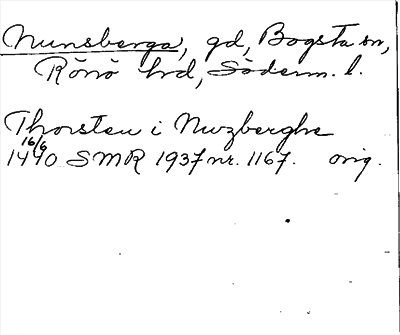 Nunsberga, gd, Bogsta sn,
Rönö hrd, Söderm. l.
Thorsten i Nwzberghe
16/6
1440 SMR 1937 nr. 1167. orig.